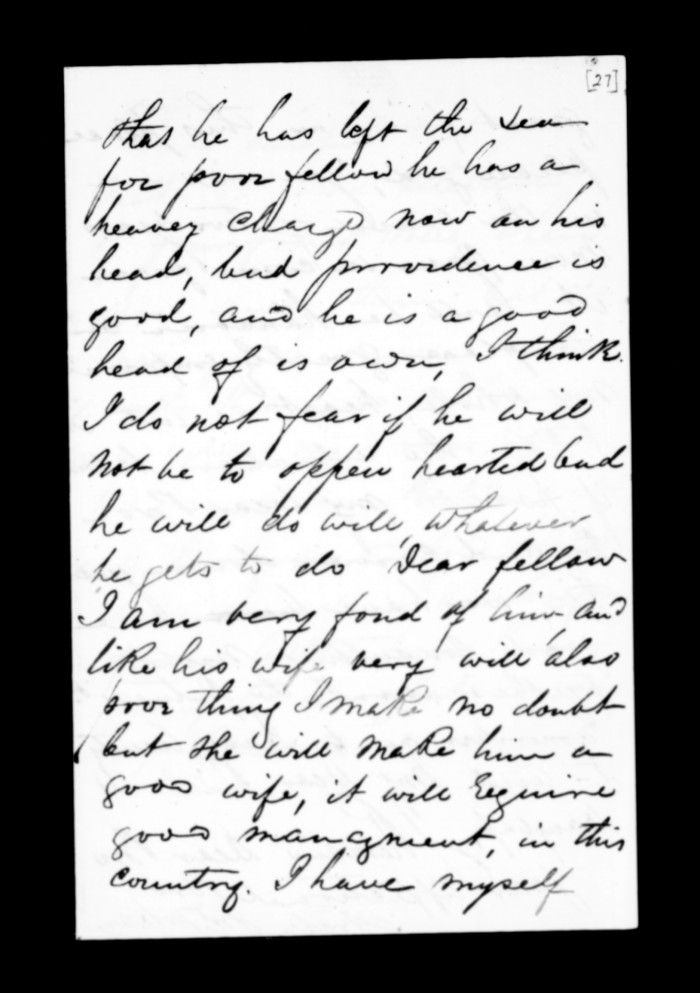 [27]
that he has left the Sea
for poor fellow he has a
heavey charge now on his
head, bud providence is
good, and he is a good
head of is own, I think.
I do not fear if he will
not be to oppen hearted bud
he will do will, whatever
he gets to do Dear fellow
I am very fond of him and
like his wife very will also
poor thing I make no doubt
but she will make him a
good wife, it will require
good managment, in this
country. I have myself